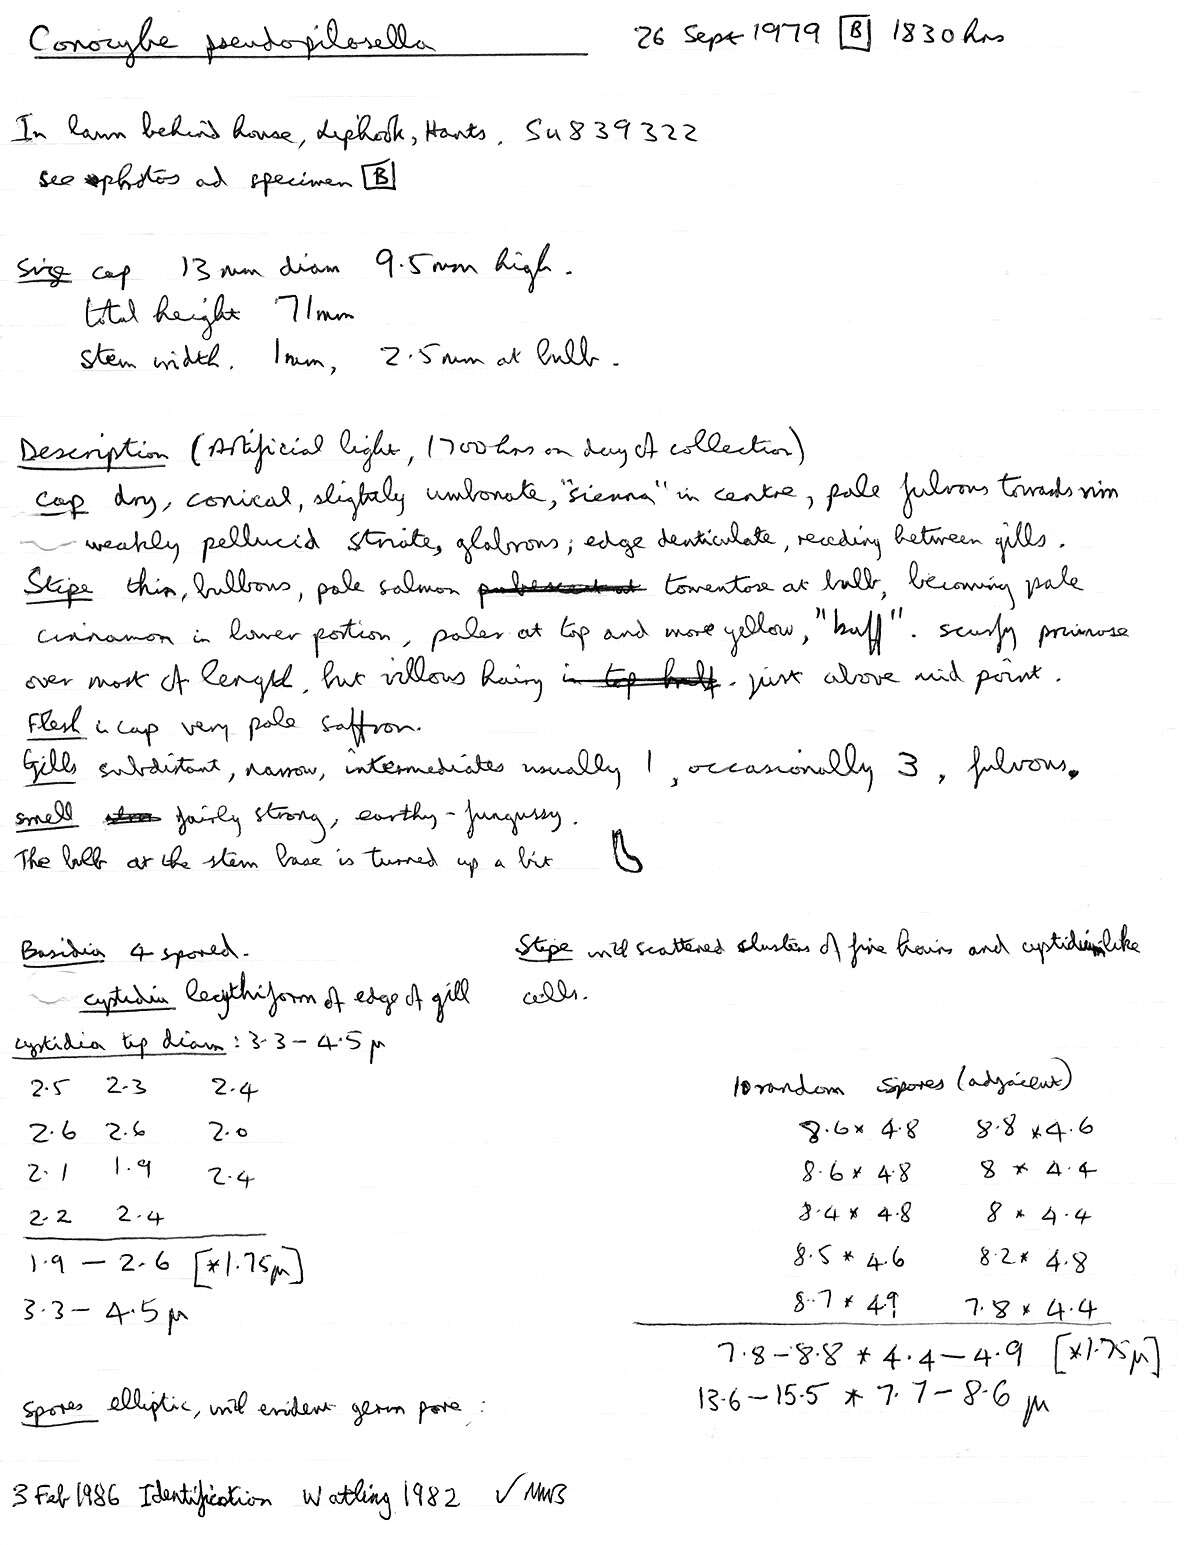 Conocybe pseudopilosella 26 Sept 1979 [B] 1830 hrs
In lawn behind house, Liphook, Hants. SU839322
see photos ad specimen [B]
Size cap 13 mm diam 9.5 mm high.
total height 71mm
stem width. 1mm, 2.5 mm at bulb.
Description (Artificial light, 1700 hrs on day of collection)
cap dry, conical, slightly umbonate, "sienna" in centre, pale fulvous towards rim
weakly pellucid striate, glabrous; edge denticulate, receding between gills.
Stipe thin, bulbous, pale salmon pubescent at tomentose at bulb, becoming pale
cinnamon in lower portion, paler at top and more yellow, "buff". scurfy pruinose
over most of length, but villous hairy in top half. just above mid point.
Flesh in cap very pale saffron.
Gills subdistant, narrow, intermediates usually 1, occasionally 3, fulvous.
smell fairly strong, earthy-fungussy.
The bulb at the stem base is turned up a bit
Basidia 4 spored.
cystidia lecythiform of edge of gill
Stipe with scattered clusters of fine hairs and cystidium like
cells.
cystidia top diam: 3.3 - 4.5 µ
2.5 2.3 2.4
2.6 2.6 2.0
2.1 1.9 2.4
2.2 2.4
1.9 - 2.6 [*1.75µ]
3.3 - 4.5 µ
10 random spores (adjacent)
8.6 * 4.8 8.8 * 4.6
8.6 * 4.8 8 * 4.4
8.4 * 4.8 8 * 4.4
8.5 * 4.6 8.2 * 4.8
8.7 * 4.9 7.8 * 4.4
7.8 - 8.8 * 4.4 - 4.9 [*1.75µ]
13.6 - 15.5 * 7.7 - 8.6 µ
Spores elliptic, with evident germ pore:
3 Feb 1986 Identification Watling 1982 ✓ MWB